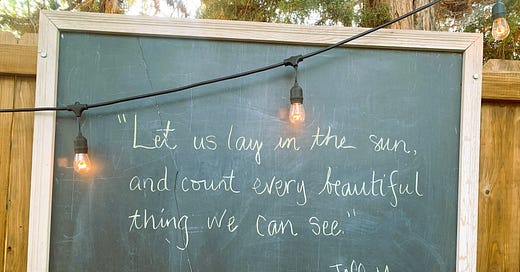 "Let us lay in the sun,
and count every beautiful
thing we can see."